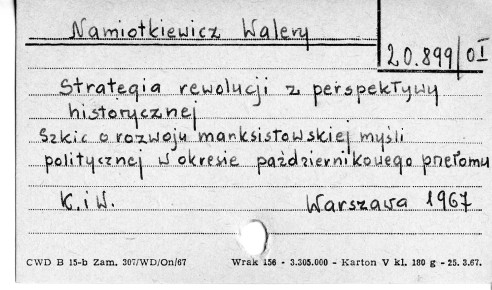 Namiotkiewicz Walery
20.899/OI
Strategia rewolucji z perspektywy
historycznej
Szkic o rozwoju marksistowskiej myśli
politycznej w okresie październikowego przełomu
K.i W. Warszawa 1967
CWD B 15-b Zam. 307/WD/On/67 Wrak 156 - 3.305.000 - Karton V kl. 180 g - 25. 3.67.